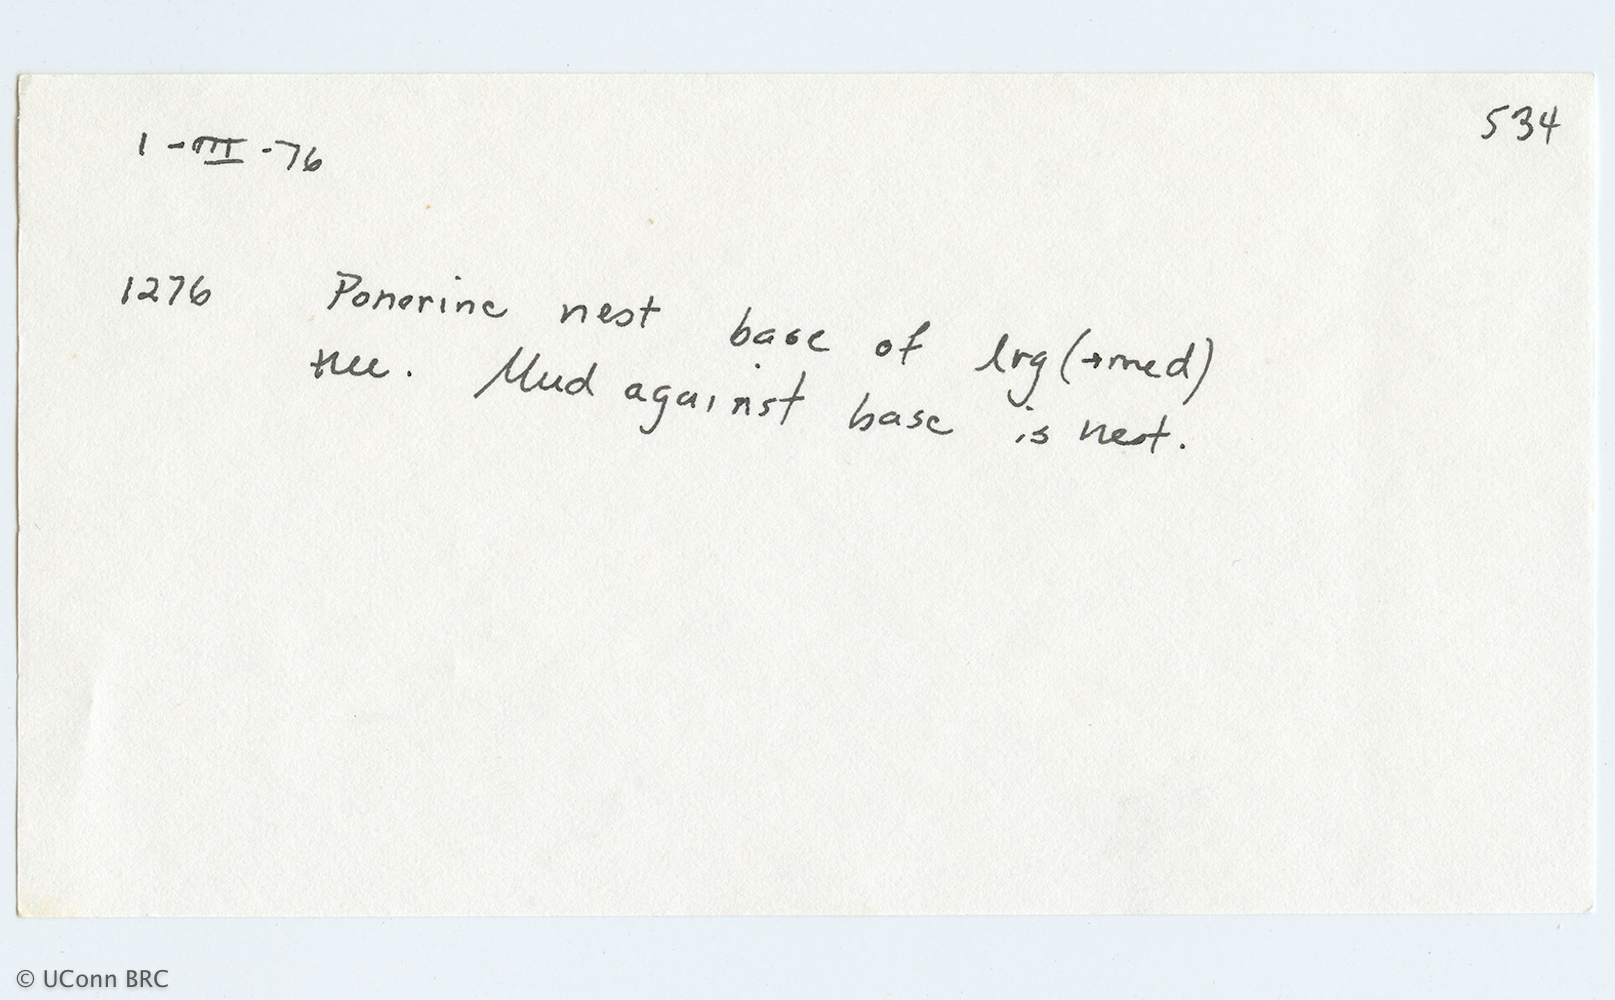 534
1-III-76
1276 Ponerine nest base of lrg (→med)
tree. Mud against base is nest.
© UConn BRC